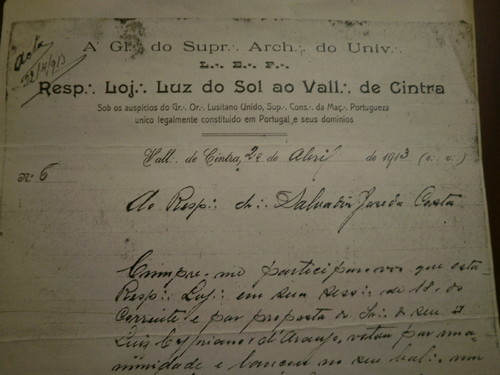 Acta
22/4/913
A∴ Gl∴ do Supr∴ Arch∴ do Univ∴
L∴ E∴ F∴
Resp∴ Loj∴ Luz do Sol ao Vall∴ de Cintra
Sob os auspicios do Gr∴ Or∴ Lusitano Unido, Sup∴ Cons∴ da Maç∴ Portugueza
unico legalmente constituido em Portugal e seus dominios
Vall∴ de Cintra, 22 de Abril de 1913 (e∴ v∴)
nº 6
Ao Resp∴ Ir∴ Salvador Costa
Cumpre-me participar-vos que esta
Resp∴ Loj∴ em sua sess∴ de 18 do
corrente e por proposta do Ir∴ de seu
Luis Cypriano d'Araujo, votou por una-
nimidade e lançou no seu